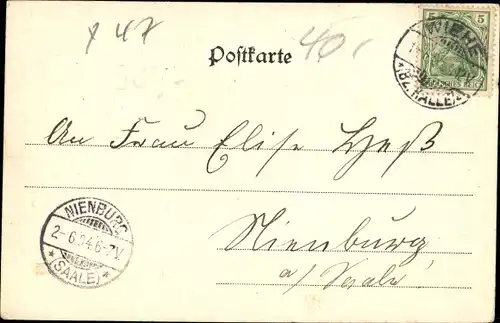 x 47
40,-
5 5
WIEHE
* (BZ. HALLE) *
Postkarte
An Frau Elise Heß
NIENBURG
2-6.04.6-7V.
* (SAALE) *
Nienburg
a/ Saale!